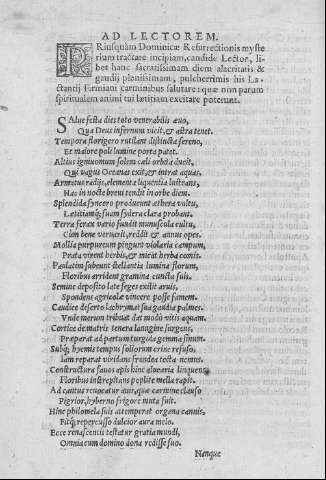 AD LECTOREM.
PRiusquàm Dominicæ Resurrectionis myste
rium tractare incipiam, candide Lector, li
bet hanc sacratissimam diem alacritatis &
gaudij plenissimam, pulcherrimis his La-
ctantij Firmiani carminibus salutare: quæ non parum
spiritualem animi tui lætitiam excitare poterunt.
SAlue festa dies toto venerabilis æuo,
Qua Deus infernum vicit, & astra tenet.
Tempora florigero rutilant distincta sereno,
Et maiore poli lumine porta patet.
Altius igniuomum solem cæli orbita ducit,
Qui vagus Oceanas exit, & intrat aquas.
Armatus radijs, elementa liquentia lustrans,
Hac in nocte breui tendit in orbe diem.
Splendida syncero producunt æthera vultu,
Lætitiamq; suam sydera clara probant.
Terra ferax vario fundit munuscula cultu,
Cùm bene vernarit, reddit & annus opes.
Mollia purpureum pingunt violaria campum,
Prata virent herbis, & micat herba comis.
Paulatim subeunt stellantia lumina florum,
Floribus arrident gramina cuncta suis.
Semine deposito late seges exilit aruis,
Spondens agricolæ vincere posse famem.
Caudice deserto lachrymat sua gaudia palmes:
Vnde merum tribuat dat modò vitis aquam.
Cortice de matris tenera lanugine surgens,
Præparat ad partum turgida gemma sinum.
Subq; hyemis tempus foliorum crine refuso,
Iam reparat viridans frondea tecta nemus.
Constructura fauos apis hinc aluearia linquens
Floribus instrepitans poplite mella rapit.
Ad cantus reuocatur auis, quæ carmine clauso
Pigrior, hyberno frigore muta fuit.
Hinc philomela suis attemperat organa cannis,
Fitq; repercusso dulcior aura melo.
Ecce renascentis testatur gratia mundi,
Omnia cum domino dona redisse suo.
Namque